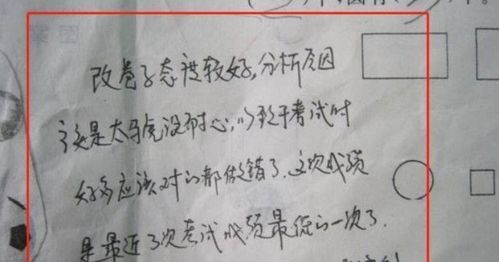 改卷了态度较好,分析原因
主要是太马虎没耐心,以至于考试时
好多应该对的都做错了.这次成绩
是最近了次考试成绩最低的一次了.